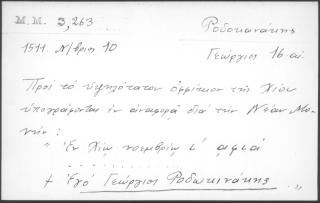 M.M. 3,263
Ροδοκανάκης
1511. Ν/βριος 10
Γεώργιος 16-αι.
Πρὸς τὸ ὑψηλότατον ὀφφίκιον τῆς Χίου
ὑπογράφονται ἐν ἀναφορᾷ διὰ τὴν Νέαν Μο-
νήν:
" Ἐν Χίῳ νοεμβρίῳ ι΄ αφια
+ Ἐγό Γεώργιος Ροδωκινάκης "